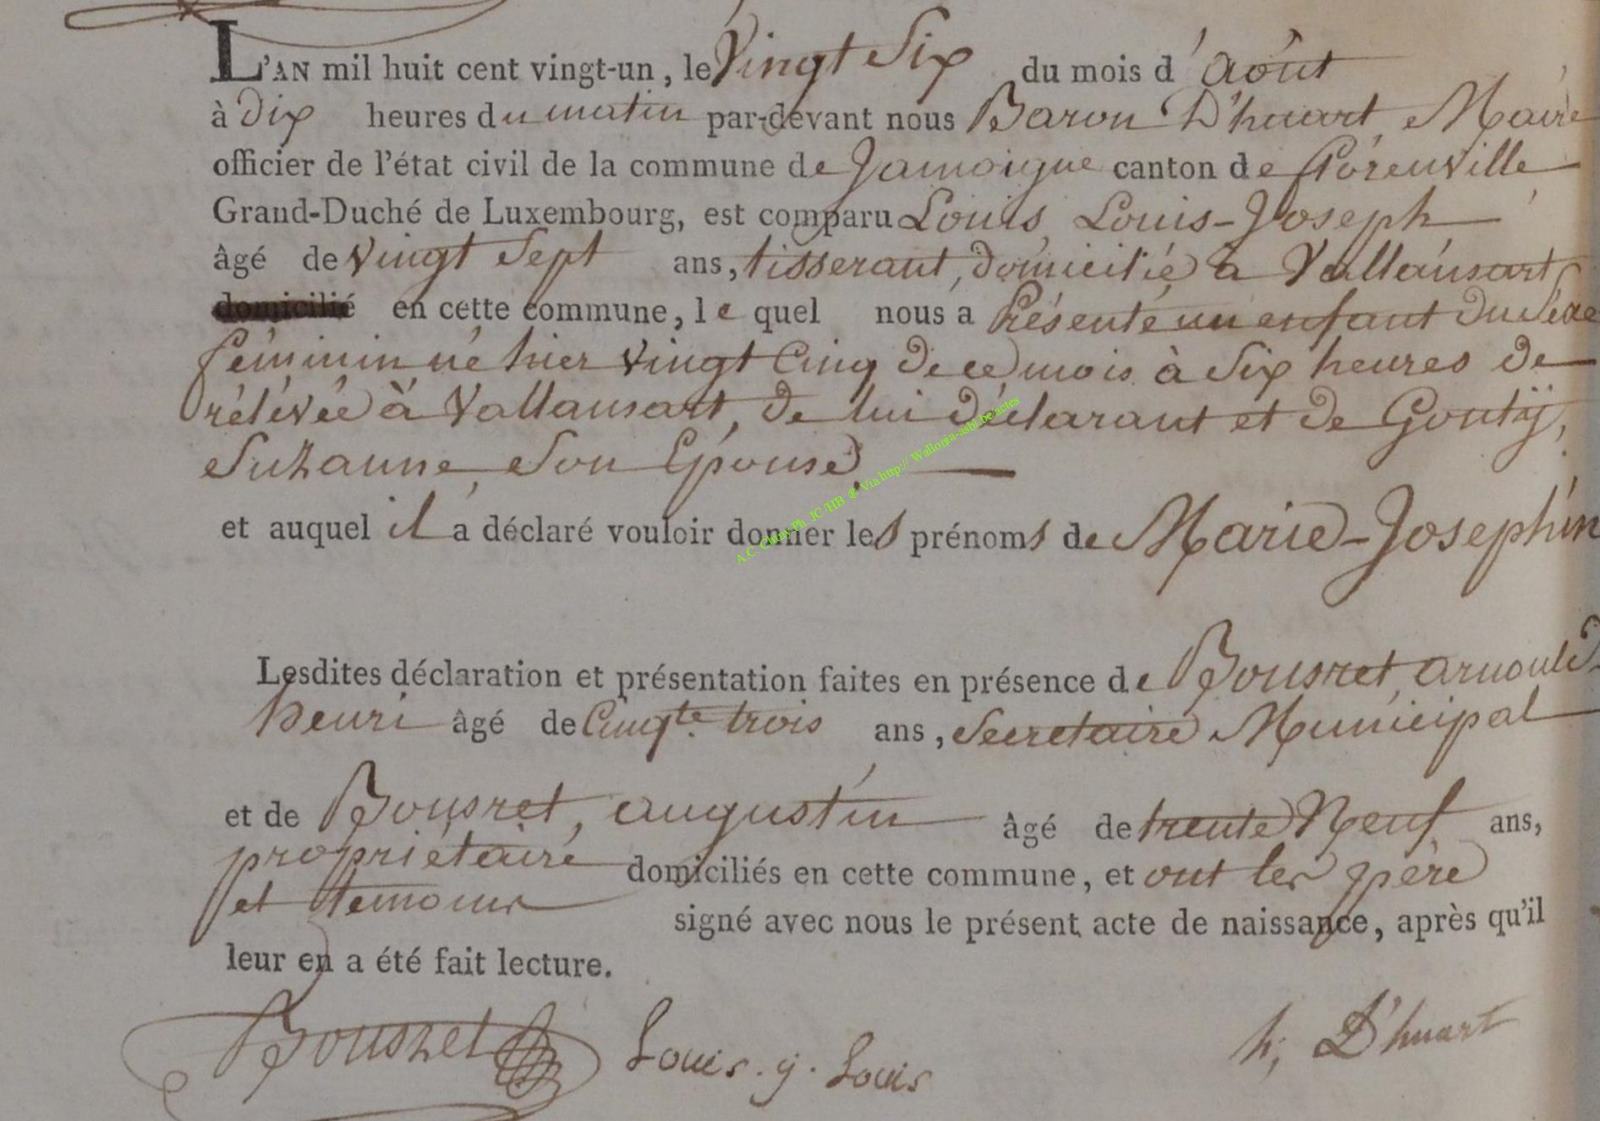 L'AN mil huit cent vingt-un, le Vingt Six du mois d'Août
à Dix heures du matin par-devant nous Baron D'huart, Maire
officier de l'état civil de la commune de Jamoigne canton de florenville
Grand-Duché de Luxembourg, est comparu Louis, Louis-Joseph
âgé de Vingt Sept ans, tisserant, domicilié à Vallansart
domicilié en cette commune, le quel nous a Présenté un enfant du Sexe
féminin né hier vingt Cinq de ce mois à Six heures de
rélévée à Vallansart, de lui déclarant et de Goutÿ,
Suzanne, Son Epouse,
et auquel il a déclaré vouloir donner les prénoms de Marie-Joséphin
A.C. Chiny Ph JC/HB @ Via http://Wallonia-asbl.be actes
Lesdites déclaration et présentation faites en présence de Bousret, arnould
henri âgé de Cinqte. trois ans, Secretaire Municipal
et de Bousret, augustin âgé de trente Neuf ans,
propriétaire domiciliés en cette commune, et ont les père
et temoins signé avec nous le présent acte de naissance, après qu'il
leur en a été fait lecture.
Bousret Louis. j. Louis h, D'huart